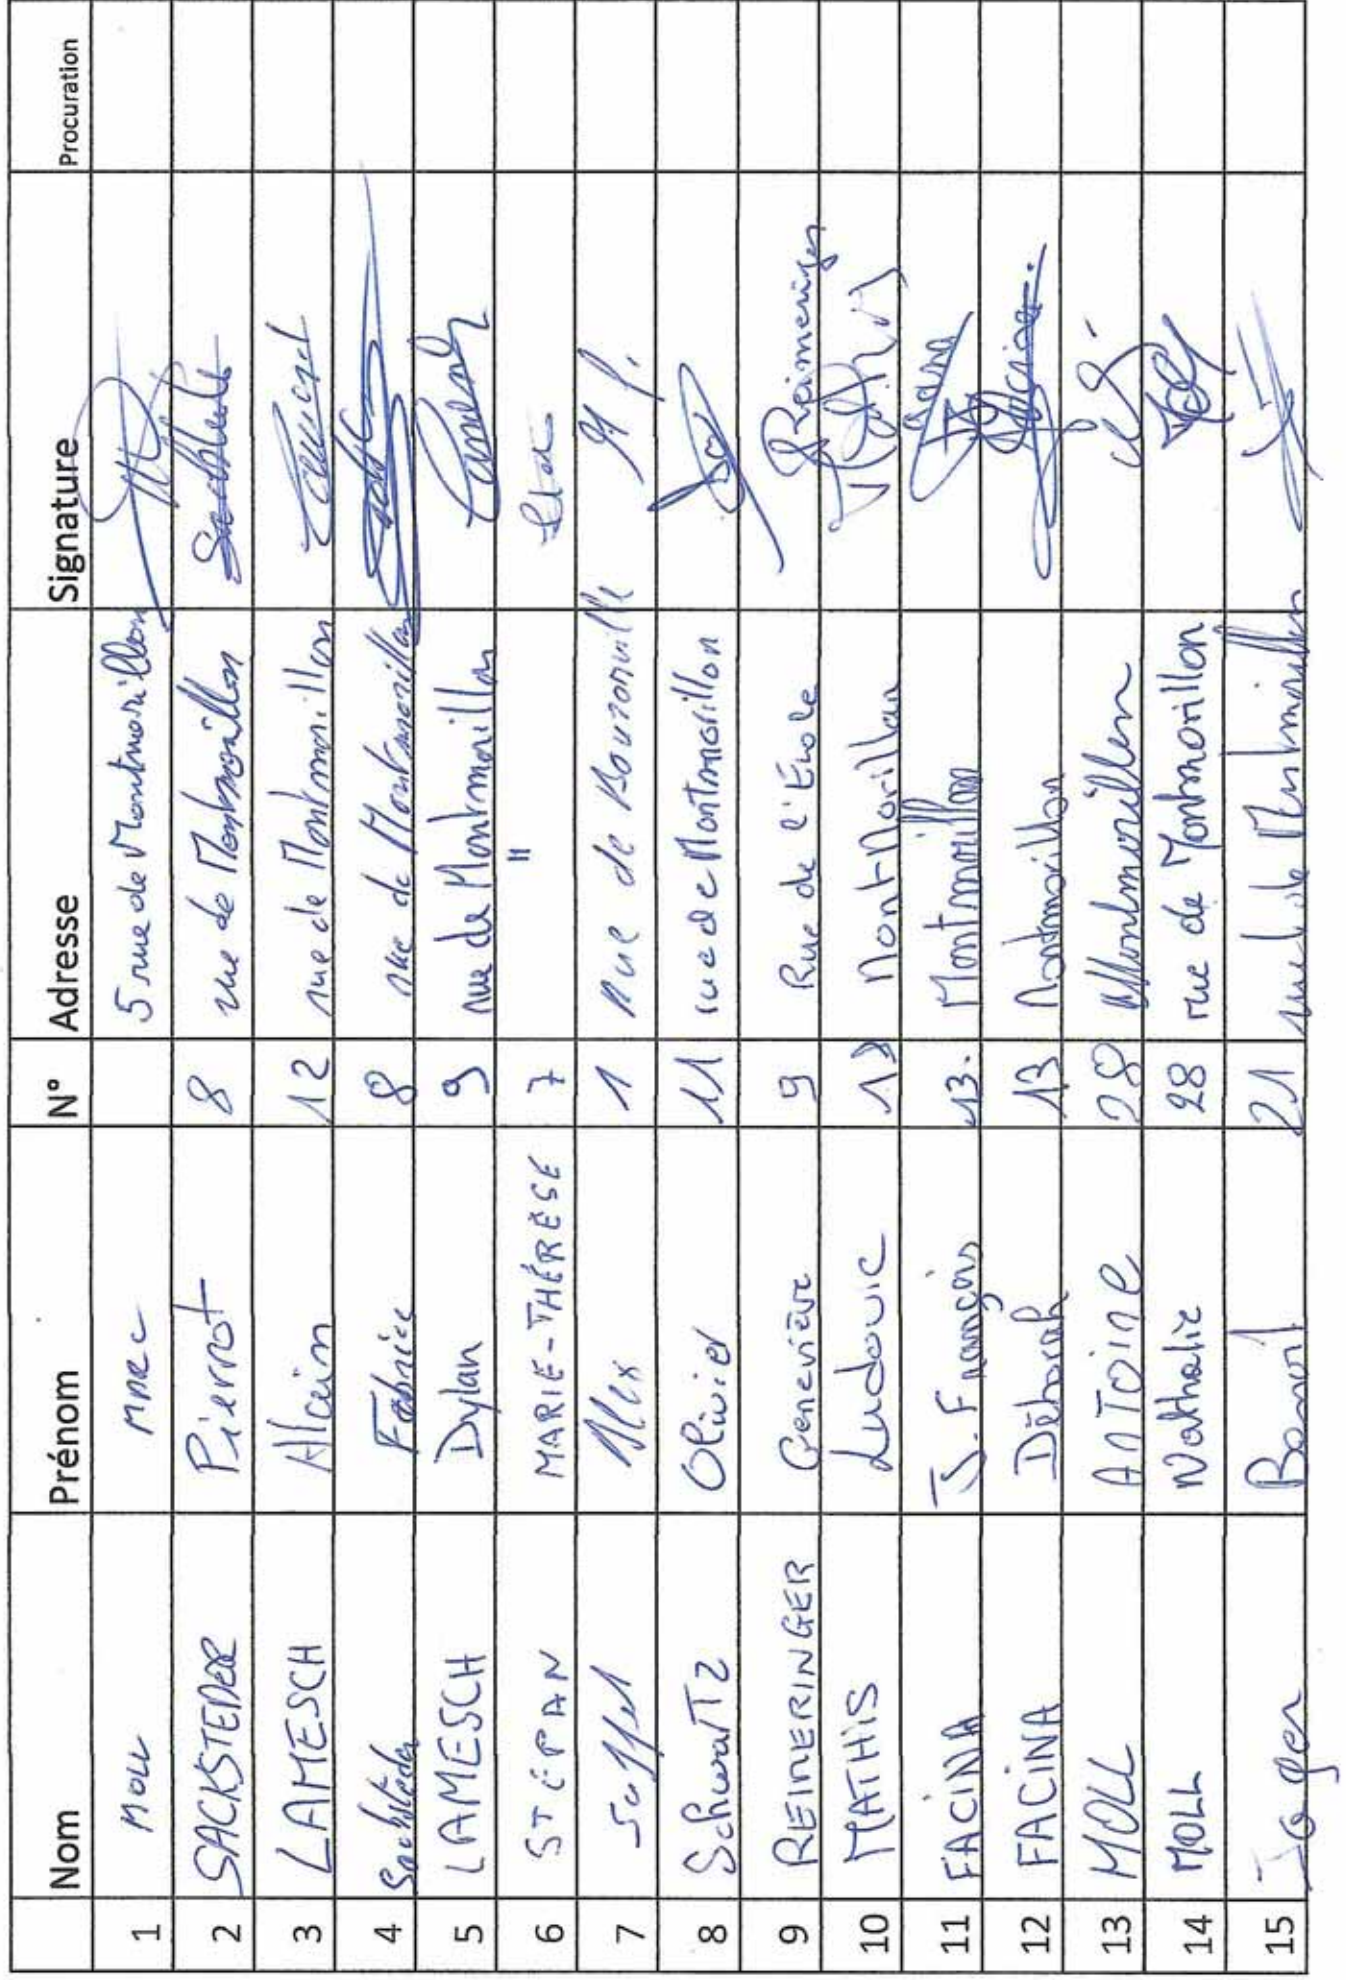 Nom Prénom N° Adresse Signature Procuration
1 MOLL MARC 5 rue de Montmorillon
2 SACKSTEDER Pierrot 8 rue de Montmorillon
3 LAMESCH Alain 12 rue de Montmorillon
4 Sacksteder Fabrice 8 rue de Montmorillon
5 LAMESCH Dylan 9 rue de Montmorillon
6 STÉPAN MARIE-THÉRÈSE 7 "
7 Suffel Alex 1 Rue de Bouzonville
8 SchwarTz Olivier 11 rue de Montmorillon
9 REINERINGER Geneviève 9 Rue de l'École Reimeringer
10 MATHIS Ludovic MontMorillon
11 FACINA J. François 13. Montmorillon
12 FACINA Déborah 13 Montmorillon
13 MOLL AnToine 28 Montmorillon
14 MOLL Nathalie 28 rue de Montmorillon
15 Jager Benoit 21 rue de Montmorillon